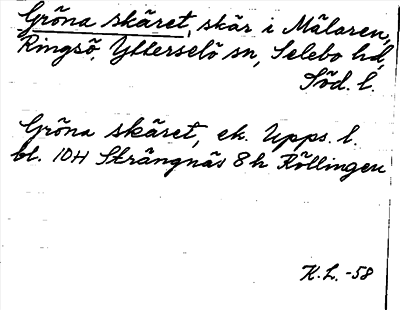 Gröna skäret, skär i Mälaren,
Ringsö, Ytterselö sn, Selebo hd,
Söd. l.
Gröna skäret, ek. Upps. l.
bl. 10H Strängnäs 8h Röllingen
K.L. -58